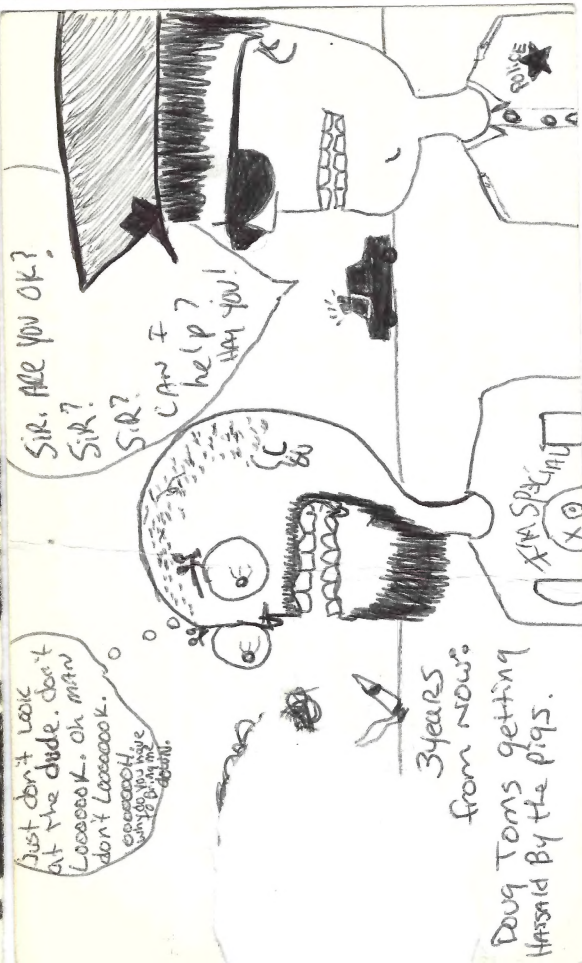 Just don't Look
at the dude. don't
Looooook. Oh MAN
don't Looooook.
ooooooooH
why do you have
to bring me
down.
SiR. ARE YOU OK?
SiR?
SiR?
CAN I
help?
HAY YOU!
POLICE
I'M SPECIAL
3 years
from now.
Doug Toms getting
Hassald By the pigs.